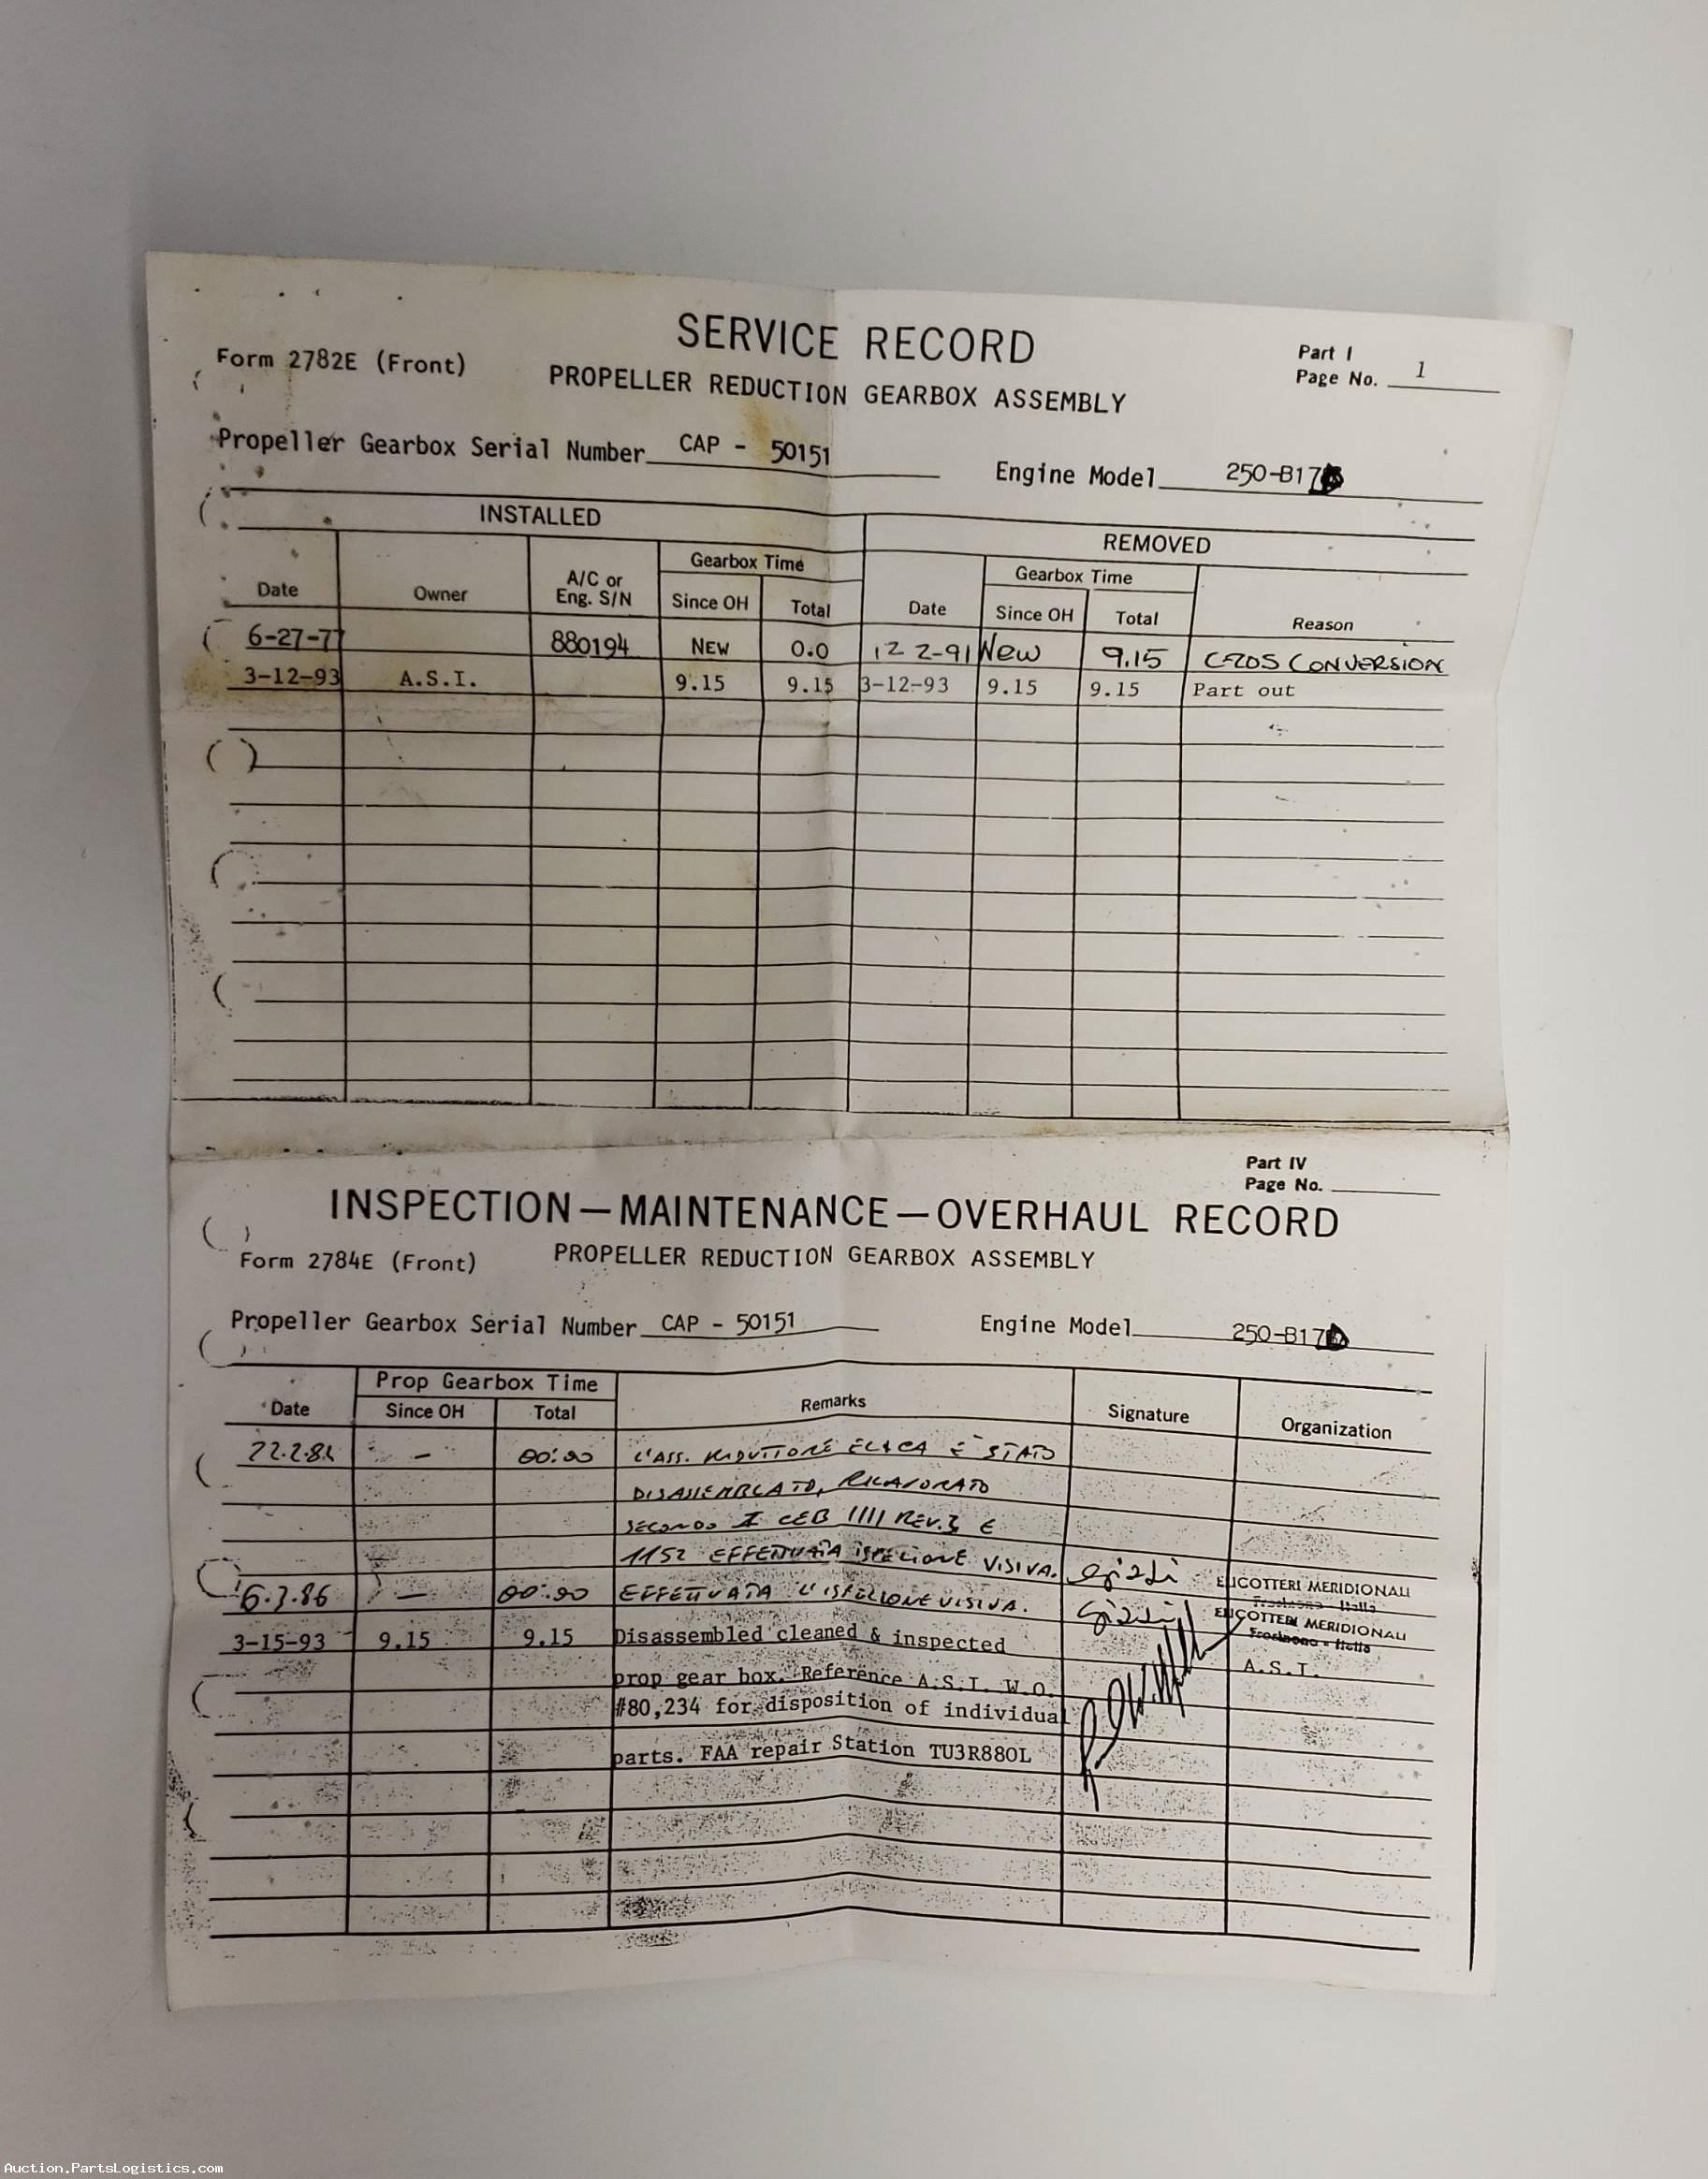 SERVICE RECORD
Form 2782E (Front)
PROPELLER REDUCTION GEARBOX ASSEMBLY
Part I
Page No. 1
Propeller Gearbox Serial Number CAP - 50151
Engine Model 250-B17
INSTALLED
REMOVED
Date Owner A/C or Eng. S/N Gearbox Time Since OH Total Date Gearbox Time Since OH Total Reason
6-27-77 880194 NEW 0.0 12 2-91 New 9.15 C-20S CONVERSION
3-12-93 A.S.I. 9.15 9.15 3-12-93 9.15 9.15 Part out
Part IV
Page No.
INSPECTION—MAINTENANCE—OVERHAUL RECORD
Form 2784E (Front) PROPELLER REDUCTION GEARBOX ASSEMBLY
Propeller Gearbox Serial Number CAP - 50151
Engine Model 250-B17
Date Prop Gearbox Time Since OH Total Remarks Signature Organization
22.2.84 — 00:00 L'ASS. RIDUTTORE ELICA E' STATO
DISASSEMBLATO, RILAVORATO
SECONDO CEB 1111 REV.3 E
1152 EFFETTUATA ISPEZIONE VISIVA. ELICOTTERI MERIDIONALI
Frosinone - Italia
6.3.86 — 00:00 EFFETTUATA L'ISPEZIONE VISIVA. ELICOTTERI MERIDIONALI
Frosinone - Italia
3-15-93 9.15 9.15 Disassembled cleaned & inspected
prop gear box. Reference A.S.I. W.O. A.S.I.
#80,234 for disposition of individual
parts. FAA repair Station TU3R880L
Auction.PartsLogistics.com